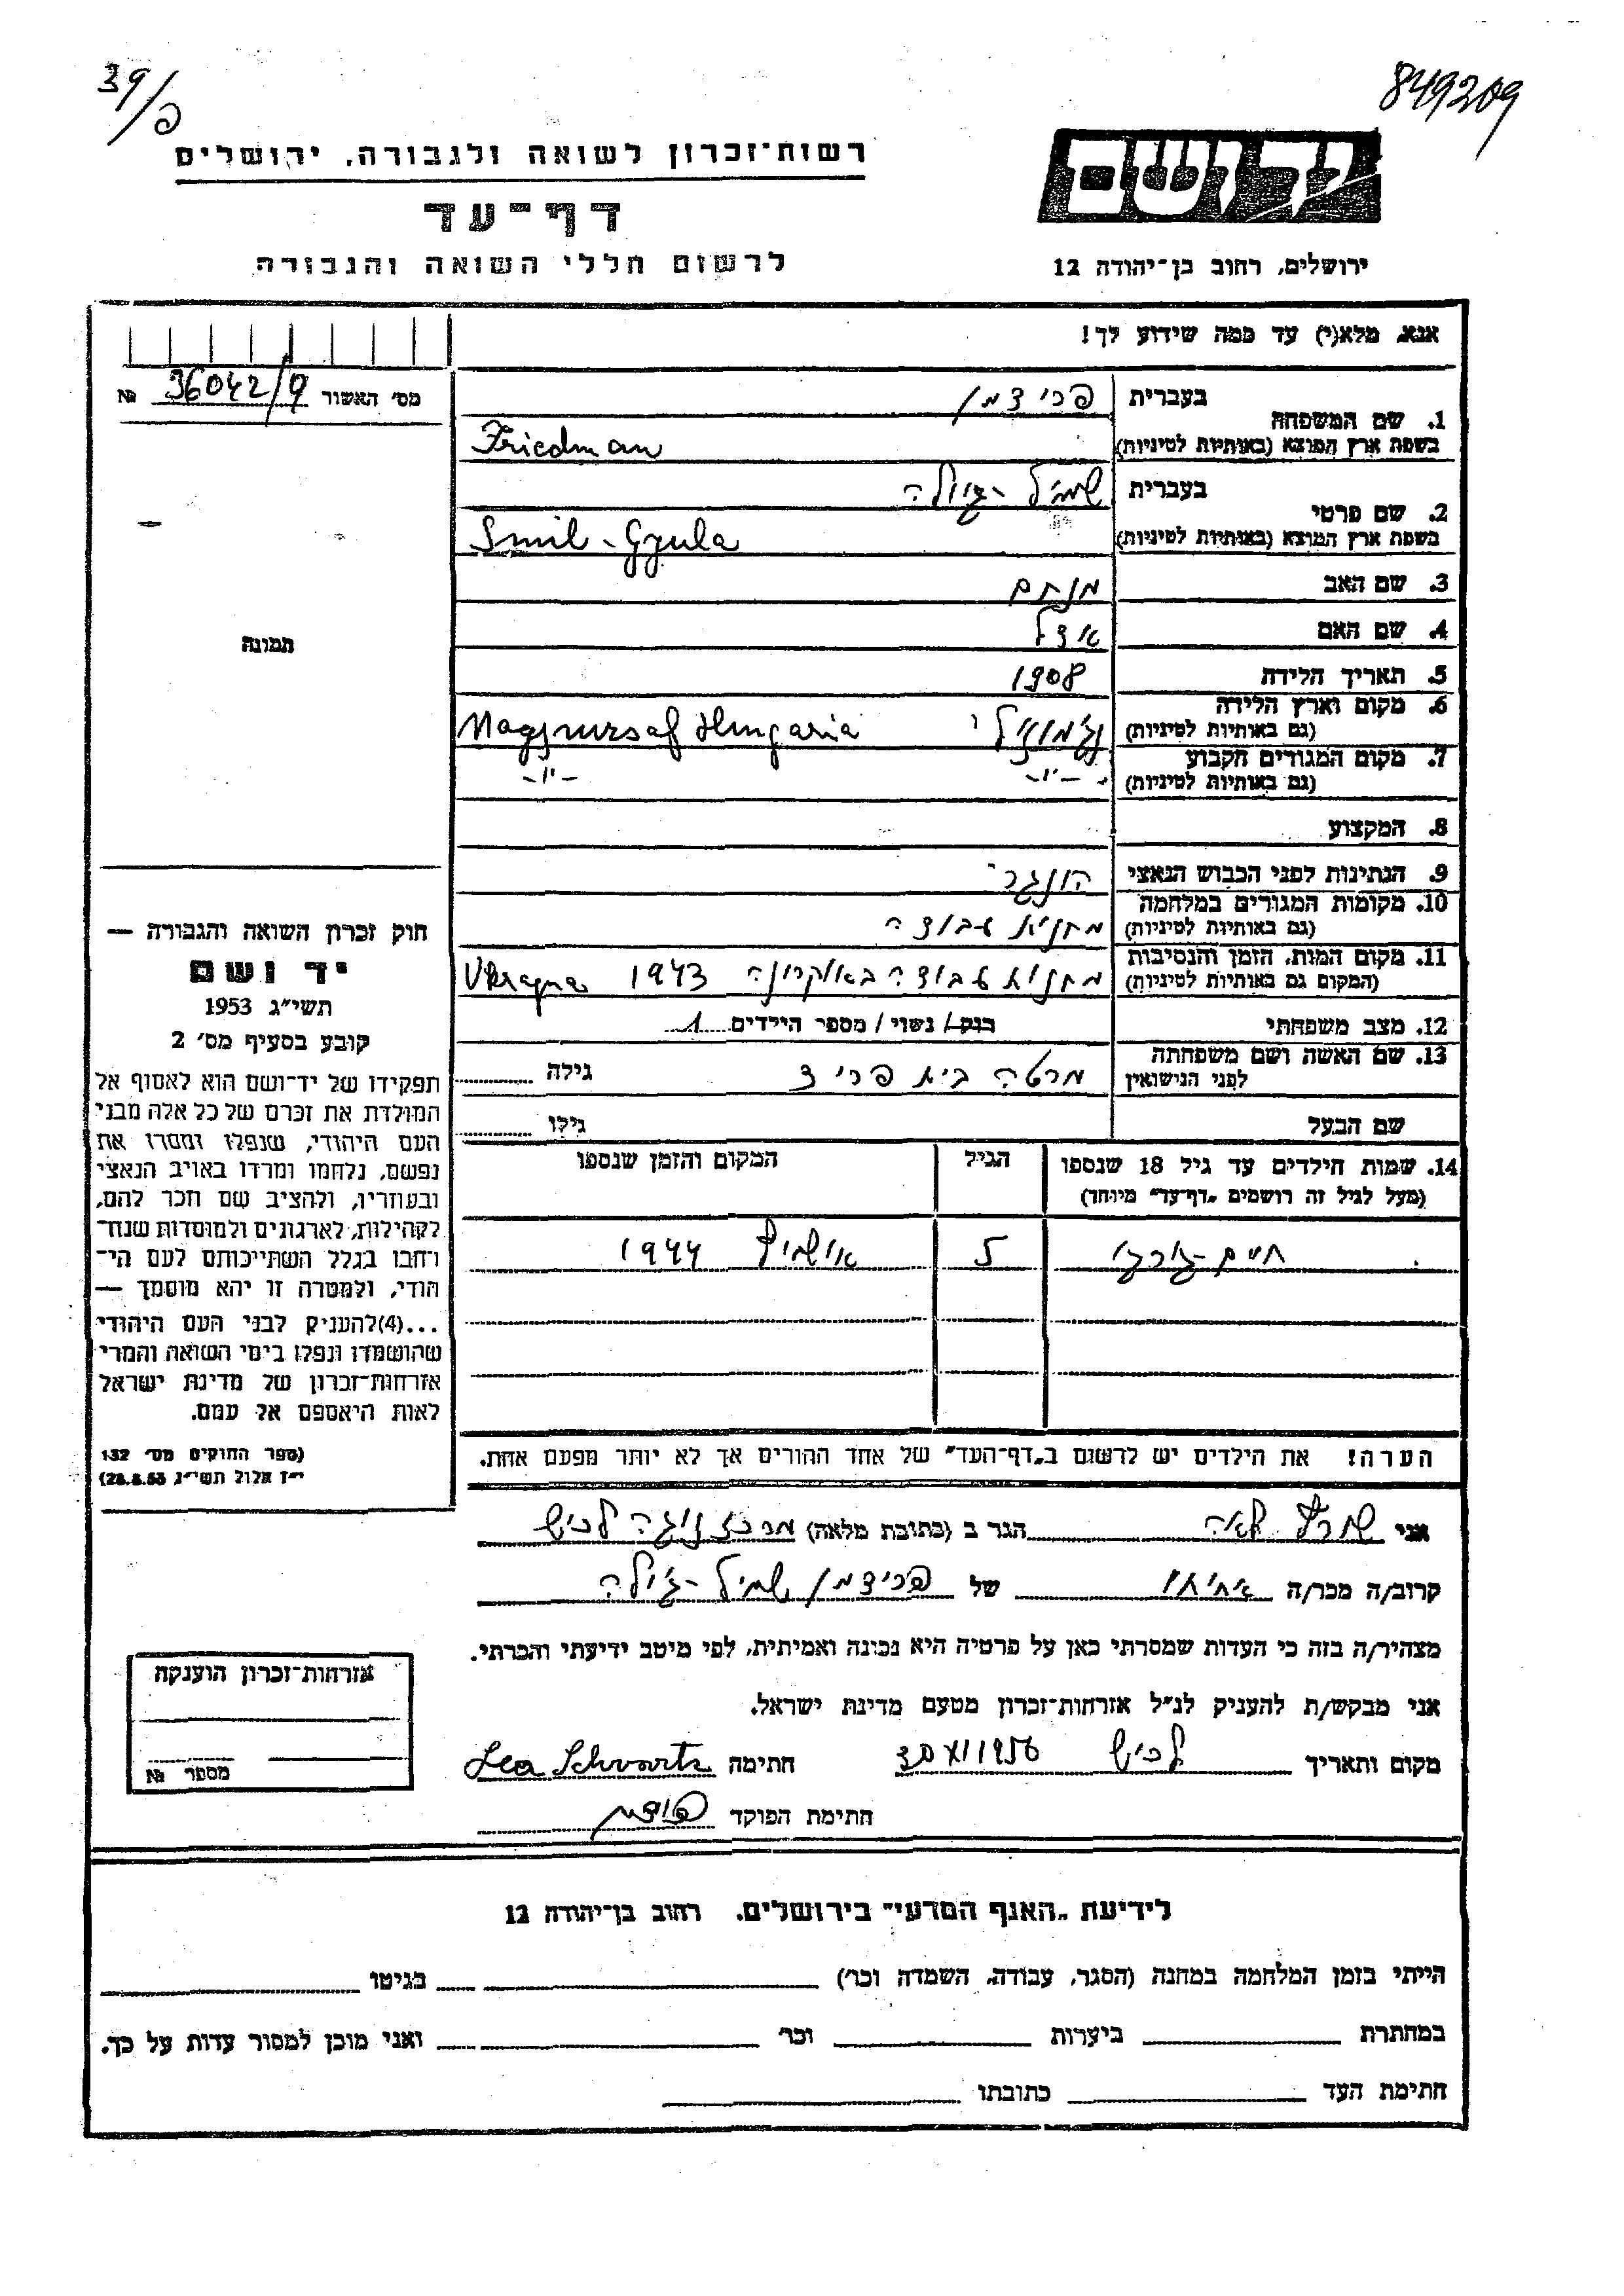 39/פ
849209
רשות־זכרון לשואה ולגבורה, ירושלים
יד ושם
דף־עד
לרשום חללי השואה והגבורה
ירושלים, רחוב בן־יהודה 12
אנא, מלא(י) עד כמה שידוע לך!
מס׳ האשור 36042/9 №
תמונה
1. שם המשפחה
בעברית פרידמן
בשפת ארץ המוצא (באותיות לטיניות) Friedman
2. שם פרטי
בעברית שמיל - גיולה
בשפת ארץ המוצא (באותיות לטיניות) Smil - Gyula
3. שם האב מנחם
4. שם האם
5. תאריך הלידה 1908
6. מקום וארץ הלידה
(גם באותיות לטיניות) Hungaria
7. מקום המגורים הקבוע
(גם באותיות לטיניות) -"- -"-
8. המקצוע
9. הנתינות לפני הכבוש הנאצי הונגרי
10. מקומות המגורים במלחמה
(גם באותיות לטיניות) מחנית עבודה
11. מקום המות, הזמן והנסיבות
(המקום גם באותיות לטיניות) מחנית עבודה באוקרינה 1943 Ukrayna
12. מצב משפחתי רווק / נשוי / מספר הילדים 1
13. שם האשה ושם משפחתה
לפני הנישואין מרטה בית פריד גילה
שם הבעל גילו
14. שמות הילדים עד גיל 18 שנספו הגיל המקום והזמן שנספו
(מעל לגיל זה רושמים „דף־עד״ מיוחד)
חיים 5 אושויץ 1944
הערה! את הילדים יש לרשום ב„דף־העד״ של אחד ההורים אך לא יותר מפעם אחת.
חוק זכרון השואה והגבורה —
יד ושם
תשי״ג 1953
קובע בסעיף מס׳ 2
תפקידו של יד־ושם הוא לאסוף אל
המולדת את זכרם של כל אלה מבני
העם היהודי, שנפלו ומסרו את
נפשם, נלחמו ומרדו באויב הנאצי
ובעוזריו, ולהציב שם וזכר להם,
לקהילות, לארגונים ולמוסדות שנח־
רחבו בגלל השתייכותם לעם הי־
הודי, ולמטרה זו יהא מוסמך —
...(4)להעניק לבני העם היהודי
שהושמדו ונפלו בימי השואה והמרי
אזרחות־זכרון של מדינת ישראל
לאות היאספם אל עמם.
(ספר החוקים מס׳ 132
י״ז אלול תשי״ג 28.8.53)
אני שורץ לאה הגר ב (כתובת מלאה) לכיש
קרוב/ה מכר/ה אחותו של פרידמן שמיל - ג׳ילה
מצהיר/ה בזה כי העדות שמסרתי כאן על פרטיה היא נכונה ואמיתית, לפי מיטב ידיעתי והכרתי.
אני מבקש/ת להעניק לנ״ל אזרחות־זכרון מטעם מדינת ישראל.
מקום ותאריך לכיש 1956 חתימה Lea Schvartz
חתימת הפוקד
אזרחות־זכרון הוענקה
מספר №
לידיעת „האגף המדעי״ בירושלים, רחוב בן־יהודה 12
הייתי בזמן המלחמה במחנה (הסגר, עבודה, השמדה וכר׳) בגיטו
במחתרת ביערות וכר׳ ואני מוכן למסור עדות על כך.
חתימת העד כתובתו